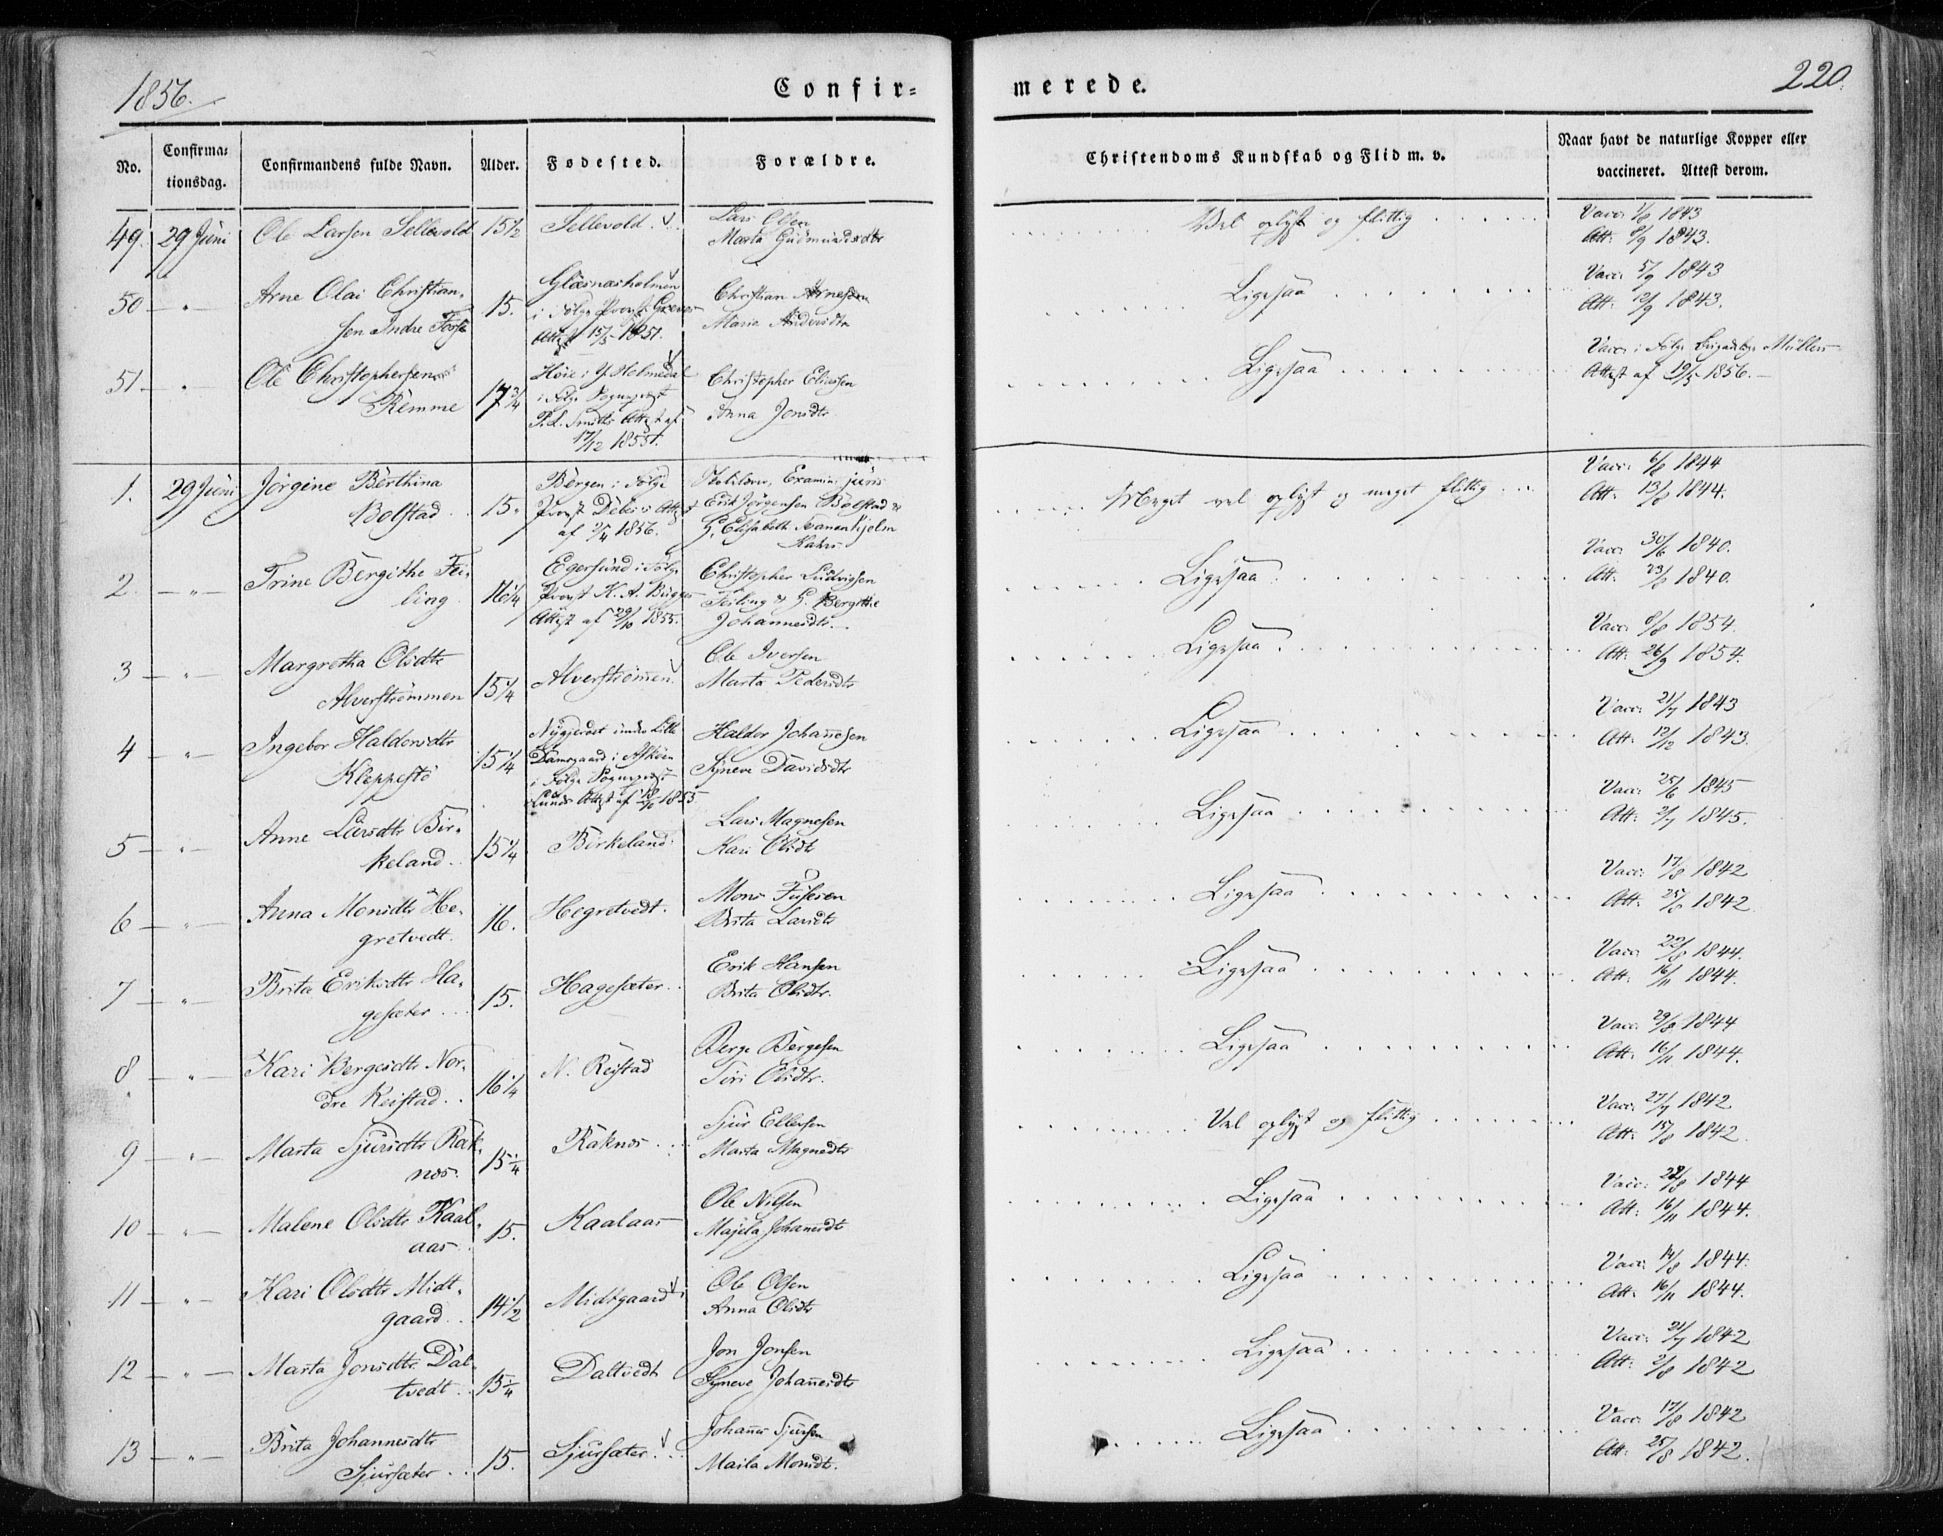 1856.
Confir=
merede.
220.
No.
Confirma=
tionsdag.
Confirmandens fulde Navn.
Alder.
Fødested.
Forældre.
Christendoms Kundskab og Flid m. v.
Naar havt de naturlige Kopper eller
vaccineret. Attest derom.
49. 29 Juni Ole Larsen Sellevold 15 1/2 Sellevold.
Lars Olsen
Marta Gudmundsdtr
Vel oplyst og flittig
Vacc. 1/8 1843
Att. 8/9 1843.
50 — " — Arne Olai Christian=
sen Indre Fosse
15.
Glæsnæsholmen
i Følge Provst
Attest 15/5 1851.
Christian Arnesen
Maria Andersdtr
Ligesaa
Vacc. 5/9 1843
Att. 12/9 1843.
51 — " Ole Christophersen
Remme
17 3/4
Høie i Y. Holmedal
i Følge Sognepræst
Smiths Attest af
17/12 1855.
Christopher Eliesen
Anna Jonsdtr
Ligesaa
Vacc. i Følge Müllers
Attest af 19/5 1856.
1. 29 Juni Jørgine Berthina
Bolstad
15.
Bergen i Følge
Provst Attest
af 2/4 1856.
Examin. juris
Erik Jørgensen Bolstad &
G. Elisabeth Svanenhjelm
Meget vel oplyst og meget flittig
Vacc. 6/8 1844
Att. 13/8 1844.
2. — " — Trine Bergithe Fei=
ling
16 1/4
Egersund i Følge
Provst K. A.
Attest af 29/10 1855.
Christopher Ludvigsen
Feiling & G. Bergithe
Johannesdtr.
Ligesaa
Vacc. 30/6 1840.
Att. 23/8 1840.
3 — " — Margretha Olsdtr
Alverstrømmen
15 1/4
Alverstrømmen
Ole Iversen
Marta Pedersdtr
Ligesaa
Vacc. 8/8 1854.
Att. 26/9 1854.
4 — " — Ingebor Haldorsdtr
Kleppestø
15 1/4
Nygjerdet under Lille
Damsgaard i Askøen
i Følge Sognepræst
Lunds Attest af 1855
Haldor Johannesen
Synneve Davidsdtr
Ligesaa
Vacc. 21/7 1843
Att. 12/12 1843.
5 — " — Anne Larsdtr Bir=
keland
15 1/4
Birkeland
Lars Magnesen
Kari Olsdtr
Ligesaa
Vacc. 25/6 1845
Att. 2/7 1845.
6 — " — Anna Monsdtr He=
gretvedt.
16.
Hegretvedt.
Mons
Brita Larsdtr
Ligesaa
Vacc. 17/8 1842
Att. 25/8 1842
7 — " — Brita Eriksdtr Ha=
gesæter
15.
Hagesæter
Erik Hansen
Brita Olsdtr.
Ligesaa
Vacc. 22/8 1844.
Att. 16/11 1844.
8 — " — Kari Bergesdtr Nor=
dre Reistad
16 1/4
N. Reistad
Berge Bergesen
Siri Olsdtr.
Ligesaa
Vacc. 29/8 1844
Att. 16/11 1844.
9 — " — Marta Sjursdtr Rak=
nes.
15 1/4
Raknes
Sjur Ellersen
Marta Magnesdtr
Vel oplyst og flittig
Vacc. 27/7 1842
Att. 15/8 1842
10 — " — Malene Olsdtr Kaal=
aas
15.
Kaalaas
Ole Nilsen
Majela Johannesdtr
Ligesaa
Vacc. 22/8 1844
Att. 16/11 1844.
11 — " — Kari Olsdtr Midt=
gaard
14 1/2
Midtgaard
Ole Olsen
Anna Olsdtr
Ligesaa
Vacc. 14/8 1844.
Att. 16/11 1844.
12 — " — Marta Jonsdtr Dal=
tvedt
15 1/4
Daltvedt
Jon Jonsen
Synneve Johannesdtr
Ligesaa
Vacc. 21/7 1842
Att. 2/8 1842
13 — " — Brita Johannesdtr
Sjursæter
15.
Sjursæter
Johannes Sjursen
Maila Monsdtr.
Ligesaa
Vacc. 17/8 1842
Att. 25/8 1842.